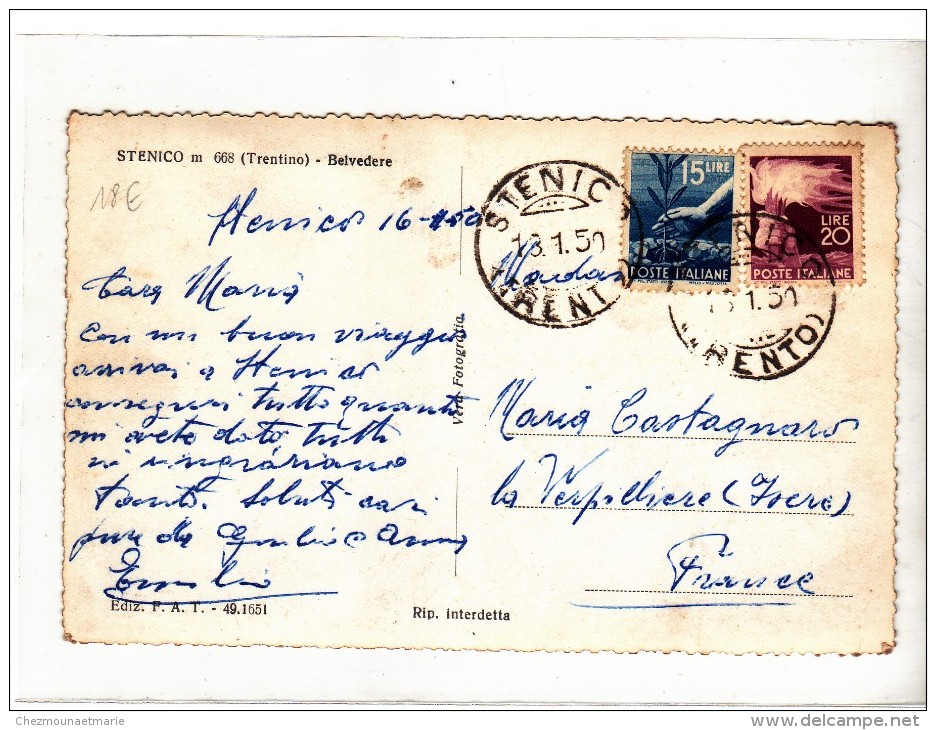 STENICO m 668 (Trentino) - Belvedere
18€
Stenico 16-1-50
Cara Maria
con un buon viaggio
arrivai a Stenico
consegnai tutto quanto
mi avete dato tutti
vi ringraziano
tanto. Saluti cari
pure da Giulio e Anna
Emilio
Ediz. F. A. T. - 49.1651
Rip. interdetta
Vera Fotografia
STENICO
(TRENTO)
15 LIRE
POSTE ITALIANE
LIRE
20
POSTE ITALIANE
(TRENTO)
Maria Castagnaro
la Verpilliere (Isere)
France
Chezmounaetmarie
www.delcampe.net